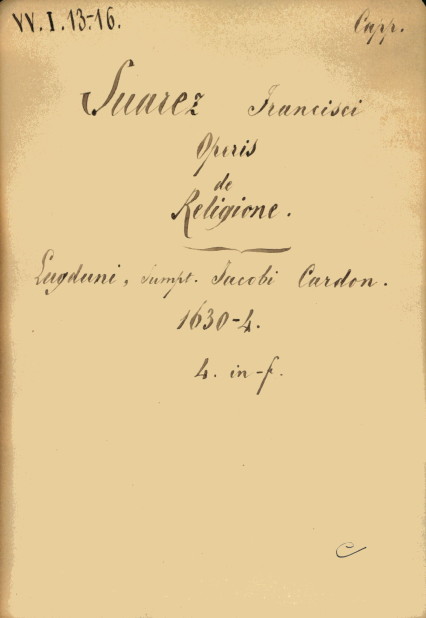 VV.I.13-16. Capp.
Suarez Francisci
Operis
de
Religione.
Lugduni, Sumpt. Jacobi Cardon.
1630-4.
4. in-f.
C